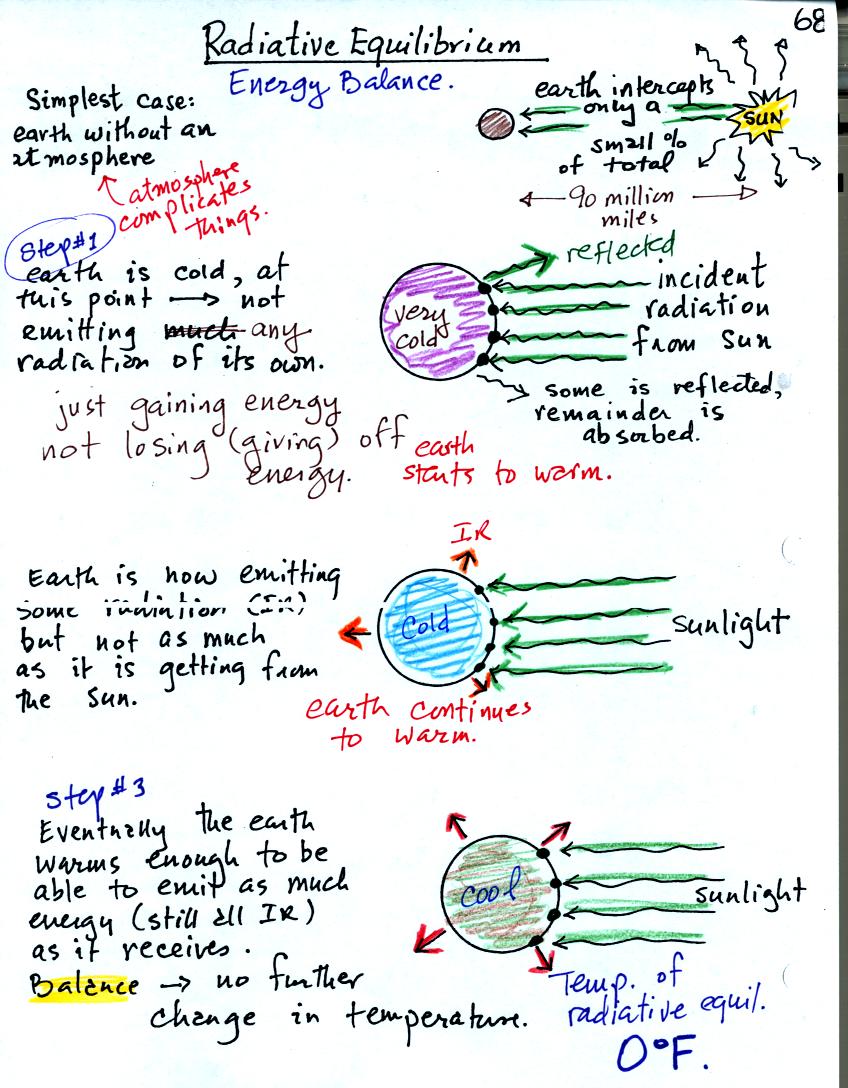 68
Radiative Equilibrium
Energy Balance.
Simplest case:
earth without an
atmosphere
atmosphere
complicates
things.
earth intercepts
only a
small %
of total
SUN
90 million
miles
Step #1
earth is cold, at
this point → not
emitting much any
radiation of its own.
just gaining energy
not losing (giving) off
energy.
very
cold
reflected
incident
radiation
from sun
some is reflected,
remainder is
absorbed.
earth
starts to warm.
Earth is now emitting
some radiation (IR)
but not as much
as it is getting from
the sun.
IR
Cold
sunlight
earth continues
to warm.
Step #3
Eventually the earth
warms enough to be
able to emit as much
energy (still all IR)
as it receives.
Balance → no further
change in temperature.
cool
sunlight
Temp. of
radiative equil.
0°F.